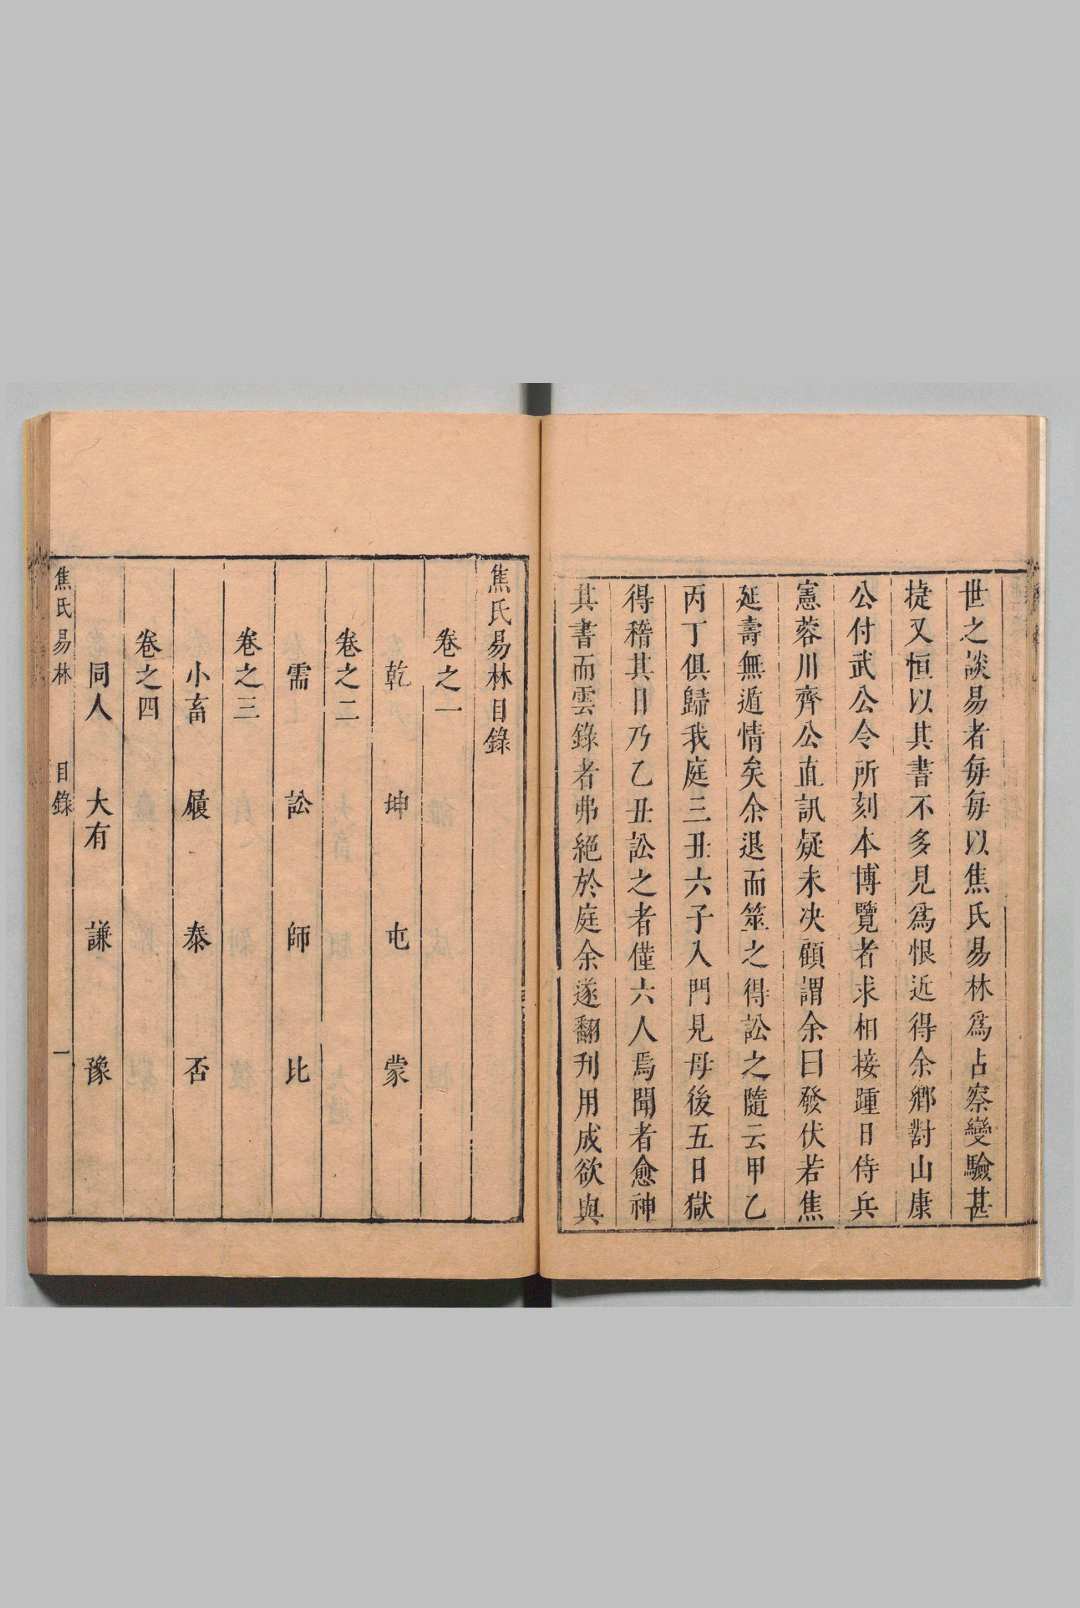 世之談易者每每以焦氏易林爲占察變驗甚
捷又恒以其書不多見爲恨近得余鄉對山康
公付武公令所刻本博覽者求相接踵日侍兵
憲蓉川齊公直訊疑未决顧謂余曰發伏若焦
延壽無遁情矣余退而筮之得訟之隨云甲乙
丙丁俱歸我庭三丑六子入門見母後五日獄
得稽其日乃乙丑訟之者僅六人焉聞者愈神
其書而雲錄者弗絕於庭余遂翻刊用成欲與
焦氏易林目錄
卷之一
乾 坤 屯 蒙
卷之二
需 訟 師 比
卷之三
小畜 履 泰 否
卷之四
同人 大有 謙 豫
焦氏易林 目錄 一